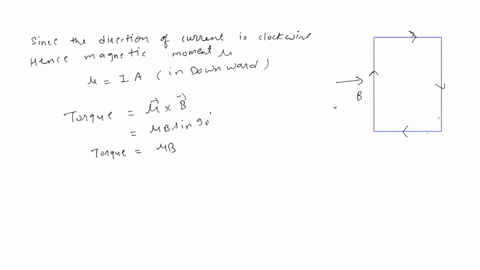 Since the direction of current is clockwise
Hence magnetic moment μ
μ = I A (in Downward)
Torque = μ⃗ × B⃗
= μB sin 90°
Torque = μB
B